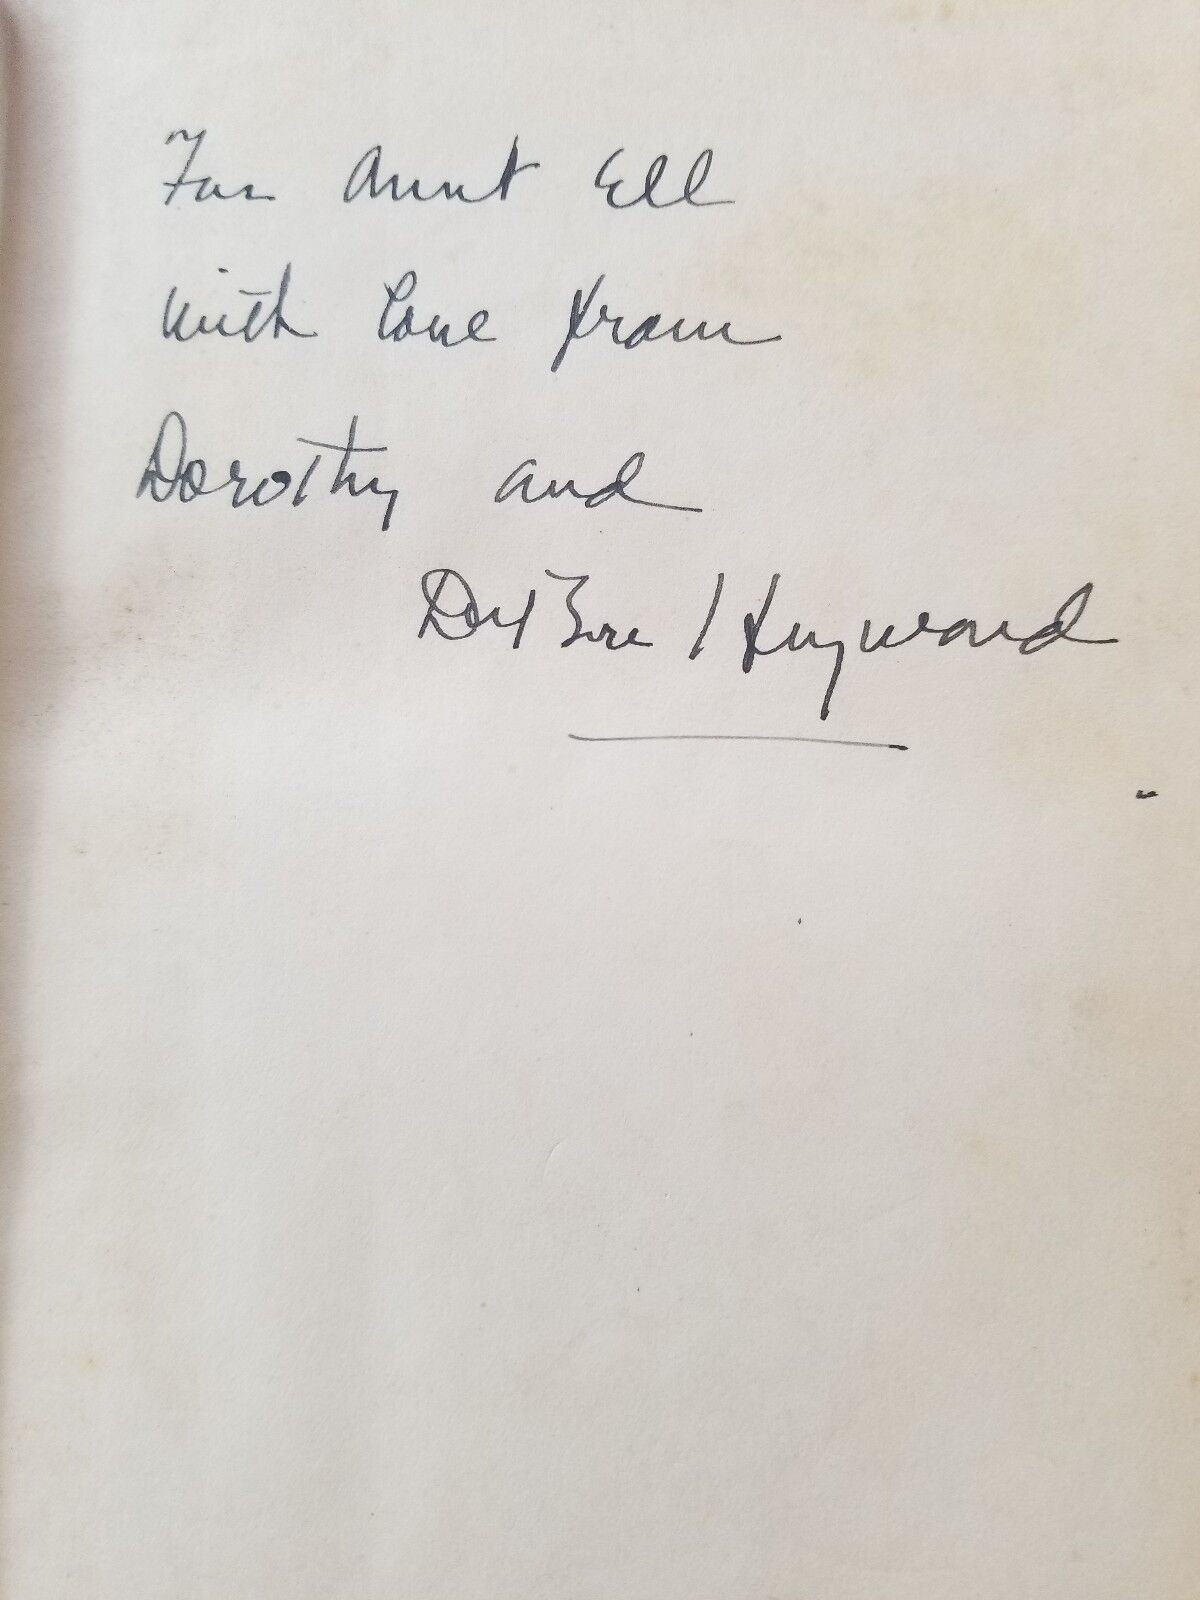 For Aunt Ell
with love from
Dorothy and
DuBose Heyward